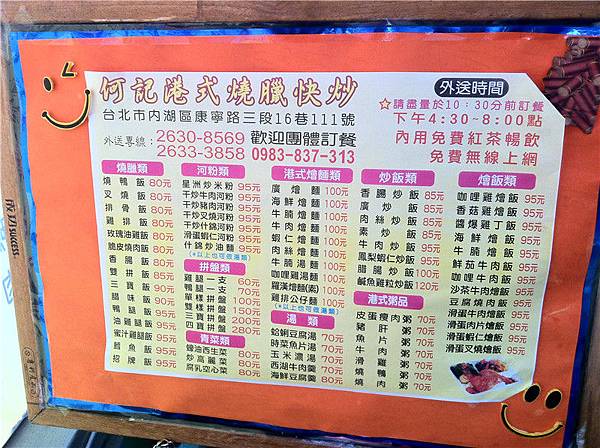 何記港式燒臘快炒
台北市內湖區康寧路三段16巷111號
外送專線：2630-8569
2633-3858
歡迎團體訂餐
0983-837-313
外送時間
☆請盡量於10：30分前訂餐
下午4:30~8:00點
內用免費紅茶暢飲
免費無線上網
燒臘類
燒鴨飯 80元
叉燒飯 80元
排骨飯 80元
雞排飯 80元
玫瑰油雞飯 80元
脆皮燒肉飯 80元
香腸飯 80元
雙拼飯 85元
三寶飯 90元
臘味飯 90元
鴨腿飯 95元
油雞腿飯 95元
蜜汁雞腿飯 95元
鱈魚飯 95元
招牌飯 95元
河粉類
星洲炒米粉 95元
干炒牛肉河粉 95元
干炒豬肉河粉 95元
干炒叉燒河粉 95元
干炒什錦河粉 95元
滑蛋蝦仁河粉 95元
什錦炒油麵 95元
(*以上也可做湯類)
拼盤類
雞腿一支 60元
鴨腿一支 70元
單樣拼盤 100元
雙樣拼盤 150元
三寶拼盤 200元
四寶拼盤 280元
青菜類
蠔油西生菜 80元
炒高麗菜 80元
腐乳空心菜 80元
港式燴麵類
廣燴麵 100元
海鮮燴麵 100元
牛腩燴麵 100元
牛肉燴麵 100元
蝦仁燴麵 100元
肉絲燴麵 100元
牛腩湯麵 100元
咖哩雞湯麵 100元
羅漢燴麵(素) 100元
雞排公仔麵 100元
(*以上也可做湯類)
湯類
蛤蜊豆腐湯 70元
時菜魚片湯 70元
玉米濃湯 70元
西湖牛肉羹 80元
海鮮豆腐羹 80元
炒飯類
香腸炒飯 85元
廣炒飯 85元
肉絲炒飯 85元
素炒飯 85元
牛肉炒飯 95元
鳳梨蝦仁炒飯 95元
臘腸炒飯 100元
鹹魚雞粒炒飯 120元
港式粥品
皮蛋瘦肉粥 70元
豬肝粥 70元
魚片粥 70元
牛肉粥 70元
滑雞粥 70元
燒鴨粥 70元
燒肉粥 70元
燴飯類
咖哩雞燴飯 95元
香菇雞燴飯 95元
醬爆雞丁飯 95元
海鮮燴飯 95元
牛腩燴飯 95元
鮮茄牛肉飯 95元
咖哩牛肉飯 95元
沙茶牛肉燴飯 95元
豆腐燒肉飯 95元
滑蛋牛肉燴飯 95元
滑蛋肉片燴飯 95元
滑蛋蝦仁燴飯 95元
滑蛋叉燒燴飯 95元